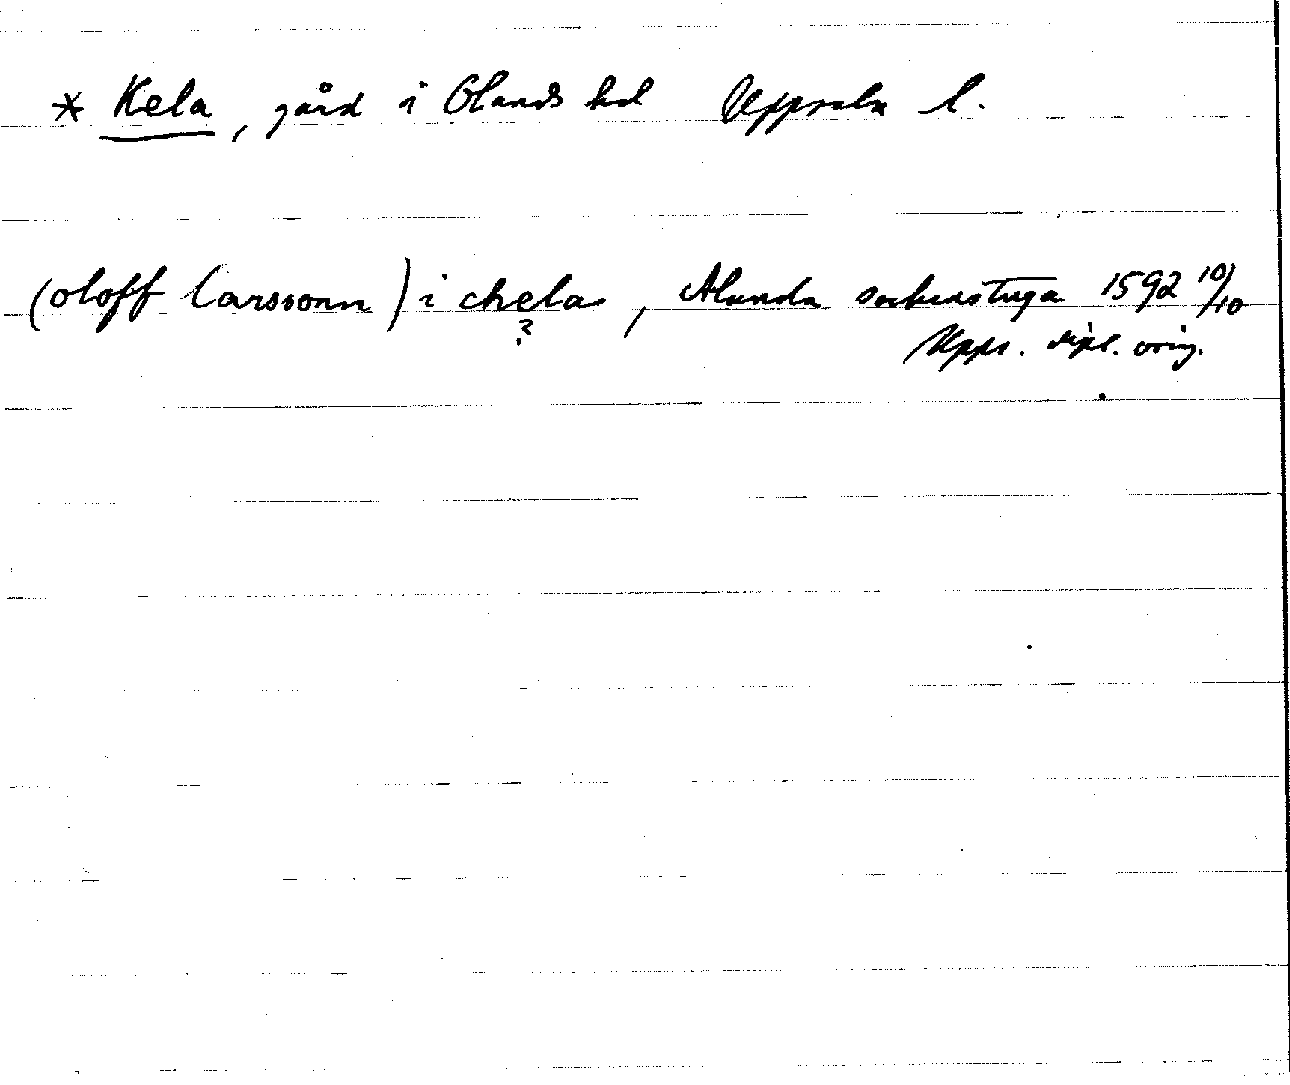 * Kela, gård i Olands hd Uppsala l.
(oloff Larssonn) i chela, Alunda sockenstuga 1592 10/10
?
Upps. dipl. orig.